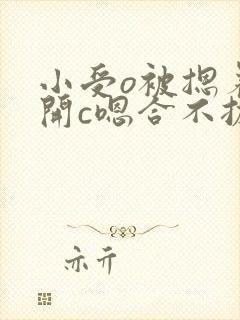 小受o被摁着
開c嗯合不拢
亦亓